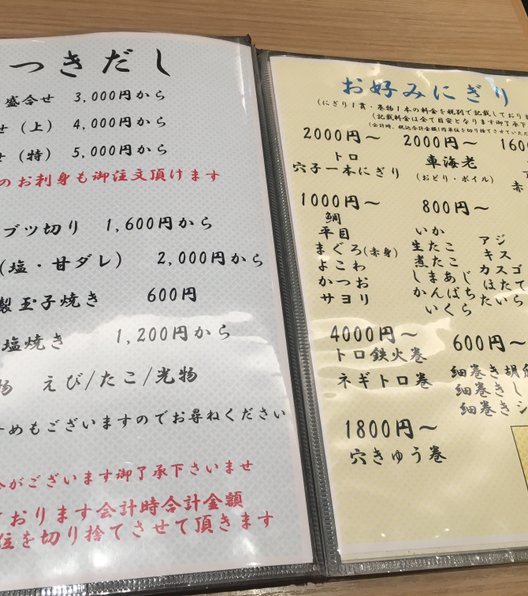 つきだし
盛合せ 3,000円から
せ（上） 4,000円から
せ（特） 5,000円から
のお刺身も御注文頂けます
ブツ切り 1,600円から
（塩・甘ダレ） 2,000円から
製玉子焼き 600円
塩焼き 1,200円から
物 えび/たこ/光物
めもございますのでお尋ねください
がございます御了承下さいませ
ております会計時合計金額
位を切り捨てさせて頂きます
お好みにぎり
（にぎり1貫・巻物1本の料金を税別で記載しており
（記載料金は全て目安となります御了承下
2000円～ 2000円～ 1600
トロ 車海老
穴子一本にぎり （おどり・ボイル） 赤
1000円～ 800円～
鯛
平目 いか アジ
まぐろ（赤身） 生たこ キス
よこわ 煮たこ カスゴ
かつお しまあじ ほたて
サヨリ かんぱち たいら
いくら
4000円～ 600円～
トロ鉄火巻 細巻き胡
ネギトロ巻 細巻きし
細巻きシ
1800円～
穴きゅう巻